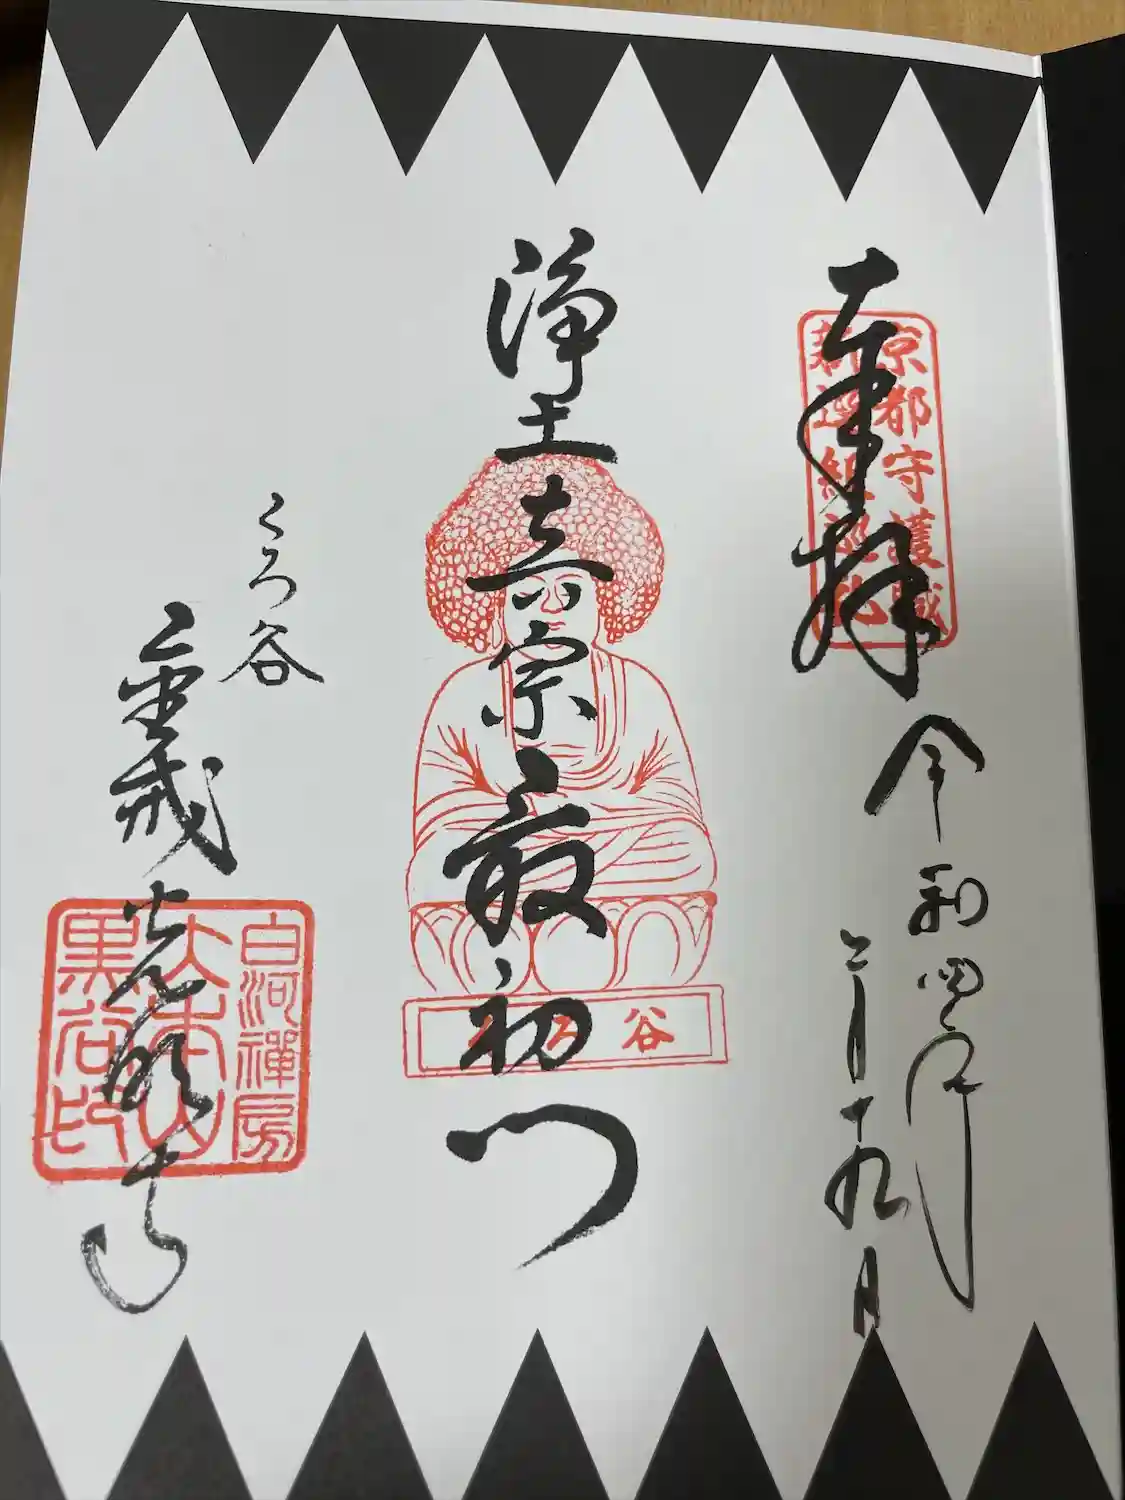 奉拝
京都守護職
新選組巡礼
令和四年
二月十九日
浄土真宗最初門
くろ谷
くろ谷
金戒光明寺
白河禅房
大本山
黒谷印